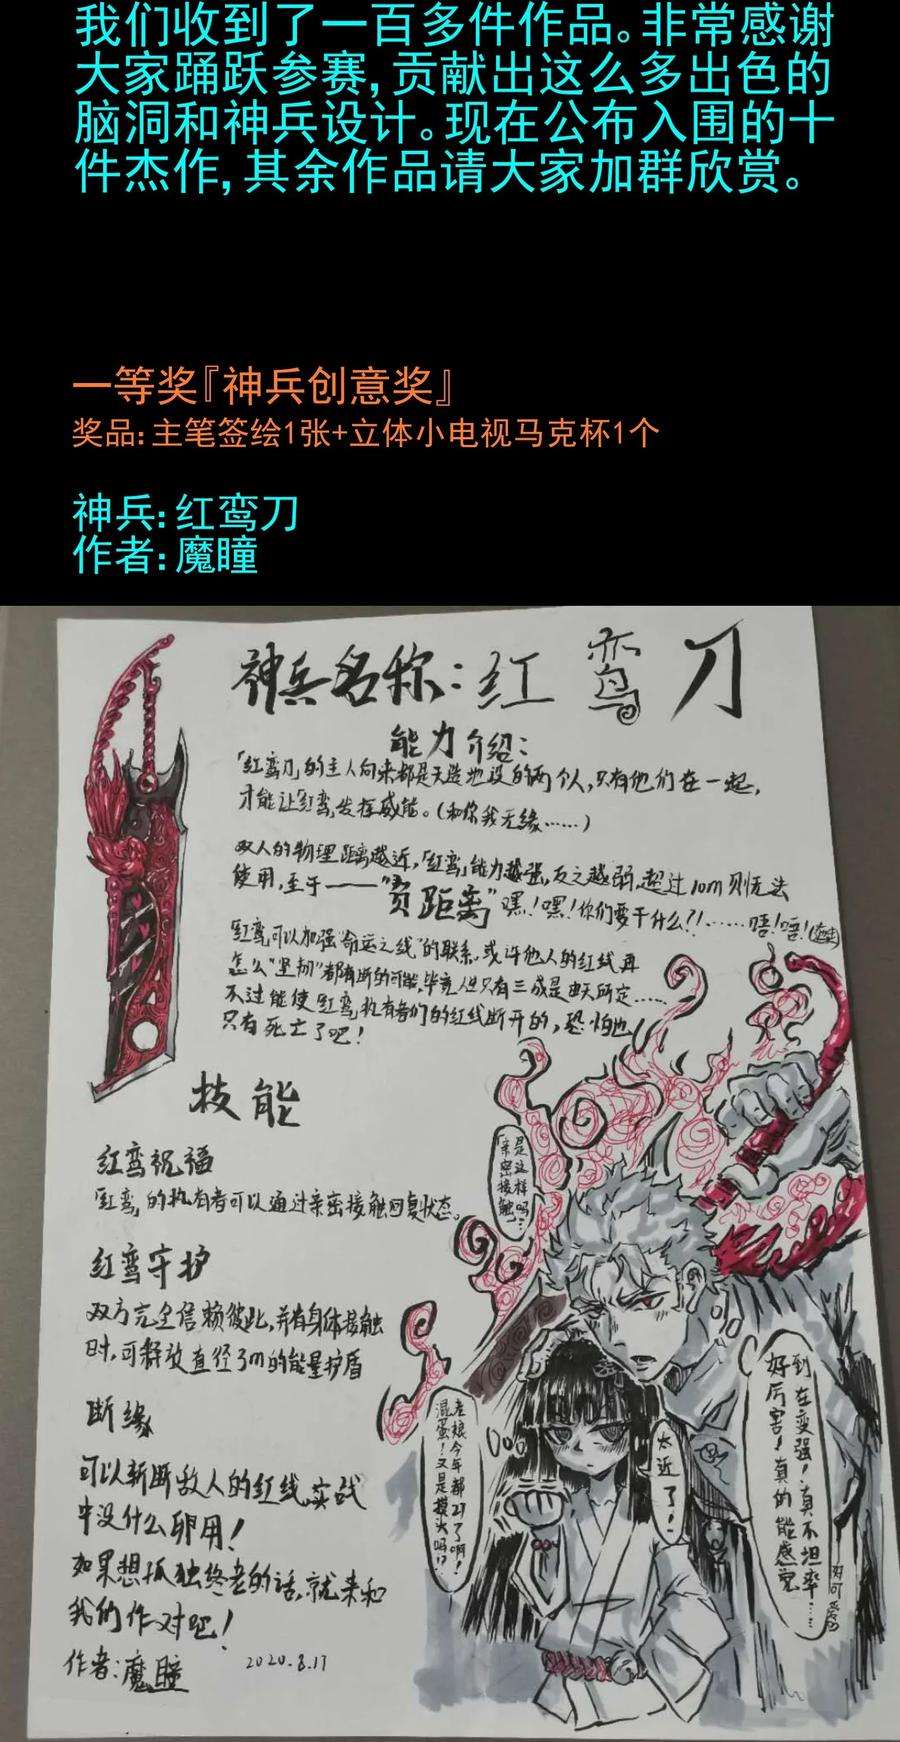 我们收到了一百多件作品。非常感谢
大家踊跃参赛,贡献出这么多出色的
脑洞和神兵设计。现在公布入围的十
件杰作,其余作品请大家加群欣赏。
一等奖『神兵创意奖』
奖品:主笔签绘1张+立体小电视马克杯1个
神兵:红鸾刀
作者:魔瞳
神兵名称:红鸾刀
能力介绍:
「红鸾刀」的主人向来都是天造地设的两个人,只有他们在一起,
才能让「红鸾」发挥威能。(和你我无缘……)
双人的物理距离越近,「红鸾」能力越强,反之越弱,超过10m则无法
使用,至于——"负距离"嘿!嘿!你们要干什么?!……唔!唔!
红鸾可以加强"命运之线"的联系,或许他人的红线再
怎么"坚韧"都有断的可能,毕竟人只有三成是由天所定……
不过能使「红鸾」执有者们的红线断开的,恐怕也
只有死亡了吧!
技能
红鸾祝福
「红鸾」的执有者可以通过亲密接触回复状态。
红鸾守护
双方完全信赖彼此,并有身体接触
时,可释放直径3m的能量护盾
断缘
可以斩断敌人的红线,实战
中没什么卵用!
如果想孤独终老的话,就来和
我们作对吧!
作者:魔瞳 2020.8.17
是这样吗…
「亲密接触」
老娘今年都27了啊!
混蛋!又是摸头吗!?
太近了!
到在变强!真不坦率……
好厉害!真的能感觉